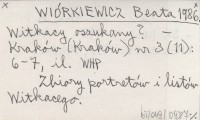 WIÓRKIEWICZ Beata 1986.
Witkacy oszukany? –
Kraków (Kraków) nr 3 (11):
6-7, il. WHP
Zbiory portretów i listów
Witkacego.